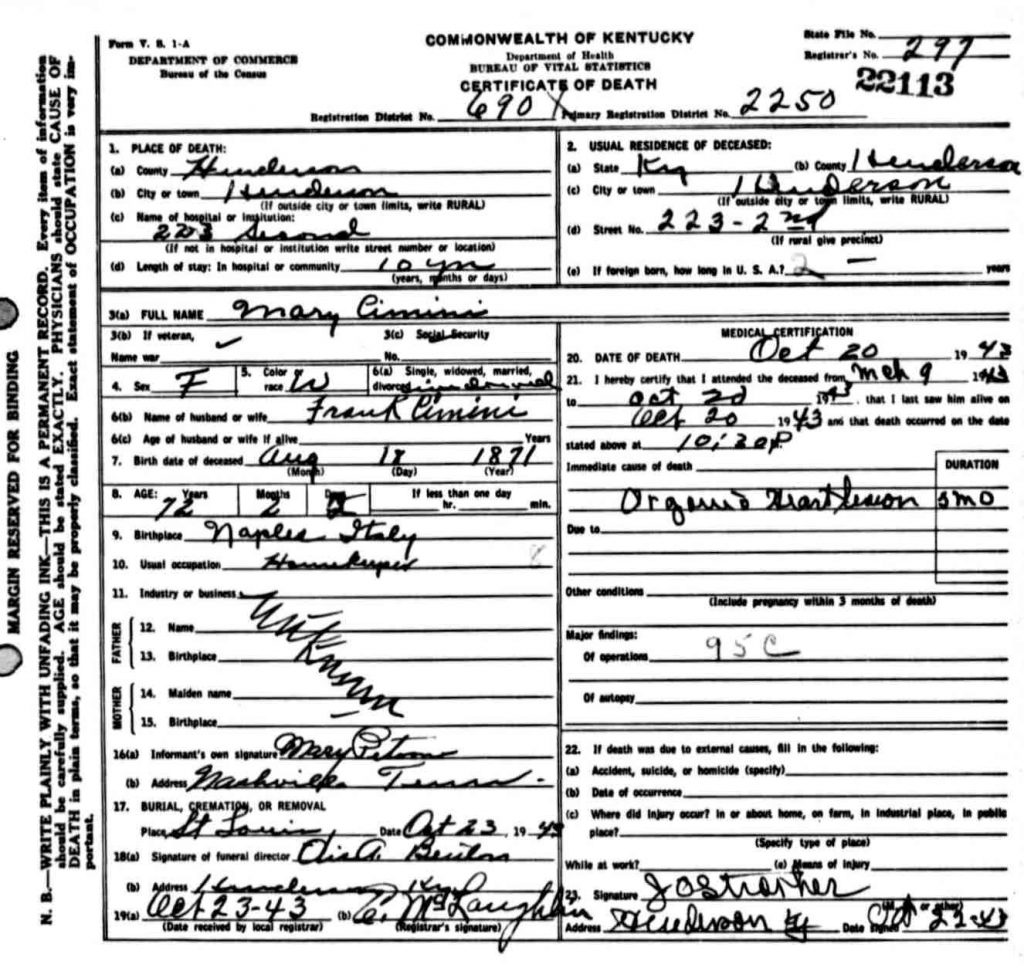 Form V. S. 1-A
DEPARTMENT OF COMMERCE
Bureau of the Census
COMMONWEALTH OF KENTUCKY
Department of Health
BUREAU OF VITAL STATISTICS
CERTIFICATE OF DEATH
State File No.
Registrar's No. 297
22113
Registration District No. 690 X Primary Registration District No. 2250
MARGIN RESERVED FOR BINDING
N. B.—WRITE PLAINLY WITH UNFADING INK—THIS IS A PERMANENT RECORD. Every item of information
should be carefully supplied. AGE should be stated EXACTLY. PHYSICIANS should state CAUSE OF
DEATH in plain terms, so that it may be properly classified. Exact statement of OCCUPATION is very im-
portant.
1. PLACE OF DEATH:
(a) County Henderson
(b) City or town Henderson
(If outside city or town limits, write RURAL)
(c) Name of hospital or institution:
223 Second
(If not in hospital or institution write street number or location)
(d) Length of stay: In hospital or community 10 yrs
(years, months or days)
2. USUAL RESIDENCE OF DECEASED:
(a) State Ky (b) County Henderson
(c) City or town Henderson
(If outside city or town limits, write RURAL)
(d) Street No. 223-2nd
(If rural give precinct)
(e) If foreign born, how long in U. S. A.? years
3(a) FULL NAME Mary Cimini
3(b) If veteran,
Name war
3(c) Social Security
No.
4. Sex F
5. Color or race W
6(a) Single, widowed, married,
divorced widowed
6(b) Name of husband or wife Frank Cimini
6(c) Age of husband or wife if alive Years
7. Birth date of deceased Aug 18 1871
(Month) (Day) (Year)
8. AGE: Years Months Days If less than one day
72 2 2 hr. min.
9. Birthplace Naples Italy
10. Usual occupation Housekeeper 8
11. Industry or business
FATHER
12. Name Unknown
13. Birthplace
MOTHER
14. Maiden name
15. Birthplace
16(a) Informant's own signature Mary
(b) Address Nashville Tenn-
17. BURIAL, CREMATION, OR REMOVAL
Place St Louis Date Oct 23, 1943
18(a) Signature of funeral director Otis A.
(b) Address Henderson Ky
19(a) Oct 23-43 (b) C. McLaughlin
(Date received by local registrar) (Registrar's signature)
MEDICAL CERTIFICATION
20. DATE OF DEATH Oct 20 1943
21. I hereby certify that I attended the deceased from Mch 9 1943
to Oct 20 1943, that I last saw him alive on
Oct 20 1943 and that death occurred on the date
stated above at 10:30 P
Immediate cause of death DURATION
Organic Heart Lesion 5 mo
Due to
Other conditions
(Include pregnancy within 3 months of death)
Major findings:
Of operations 95C
Of autopsy
22. If death was due to external causes, fill in the following:
(a) Accident, suicide, or homicide (specify)
(b) Date of occurrence
(c) Where did injury occur? In or about home, on farm, in industrial place, in public
place?
(Specify type of place)
While at work? (e) Means of injury
23. Signature J O Strother
(M. D. or other)
Address Henderson Ky Date signed Oct 23-43